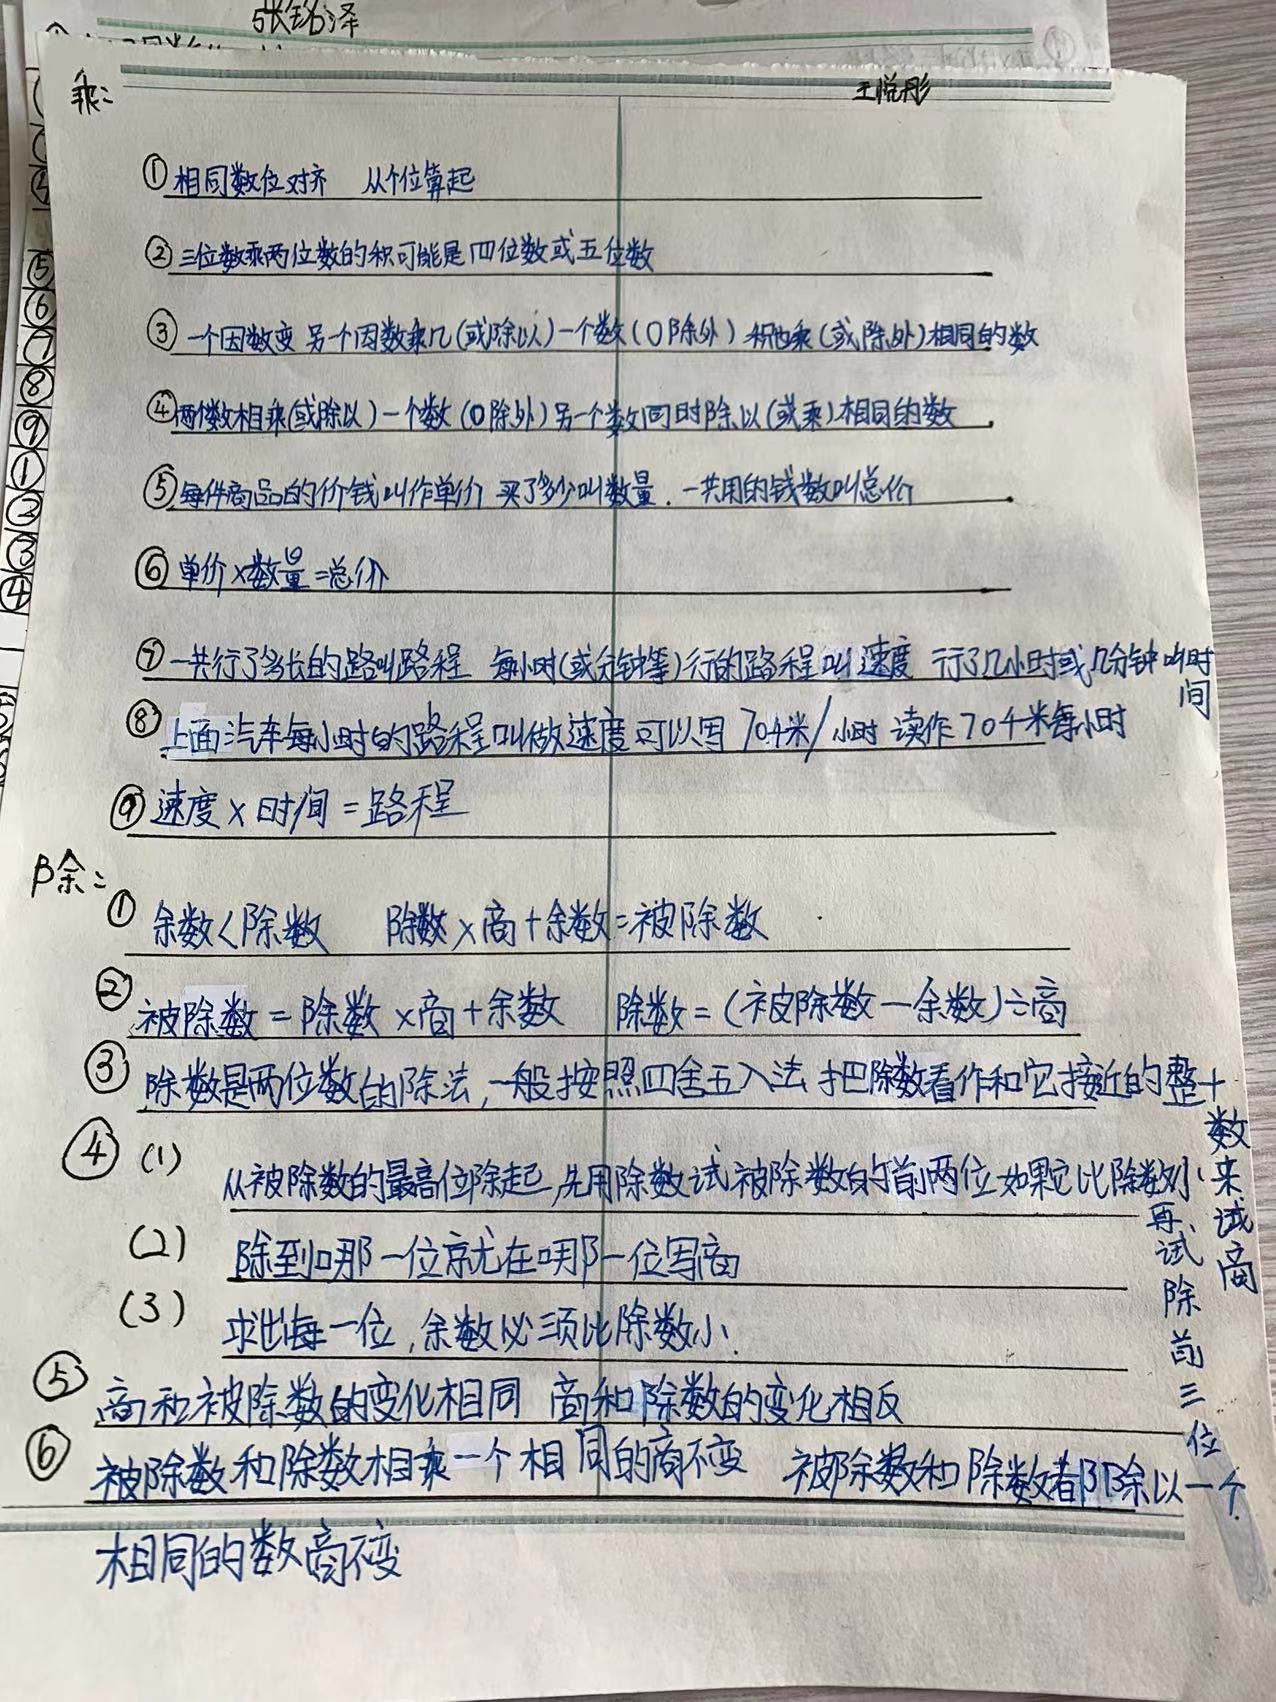 张铭泽
乘:
王悦彤
①相同数位对齐 从个位算起
②三位数乘两位数的积可能是四位数或五位数
③一个因数变 另一个因数乘几(或除以)一个数(0除外) 积也乘(或除外)相同的数
④两个数相乘(或除以)一个数(0除外)另一个数同时除以(或乘)相同的数
⑤每件商品的价钱叫作单价 买了多少叫数量. 一共用的钱数叫总价
⑥单价×数量=总价
⑦一共行了多长的路叫路程 每小时(或分钟等)行的路程叫速度 行了几小时或几分钟叫时
间
⑧上面汽车每小时的路程叫做速度可以写 70千米/小时 读作70千米每小时
⑨速度×时间=路程
除:
① 余数<除数 除数×商+余数=被除数
② 被除数=除数×商+余数 除数=(被除数一余数)÷商
③ 除数是两位数的除法,一般按照四舍五入法 把除数看作和它接近的整十
数来试商
④ (1) 从被除数的最高位除起,先用除数试被除数的前两位如果它比除数小,
再试除前三位
(2) 除到哪一位就在哪一位写商
(3) 求出每一位,余数必须比除数小.
⑤ 商和被除数的变化相同 商和除数的变化相反
⑥ 被除数和除数相乘一个相同的商不变 被除数和除数都除以一个
相同的数商不变
⑤
⑥
⑦
⑧
⑨
①
②
③
④